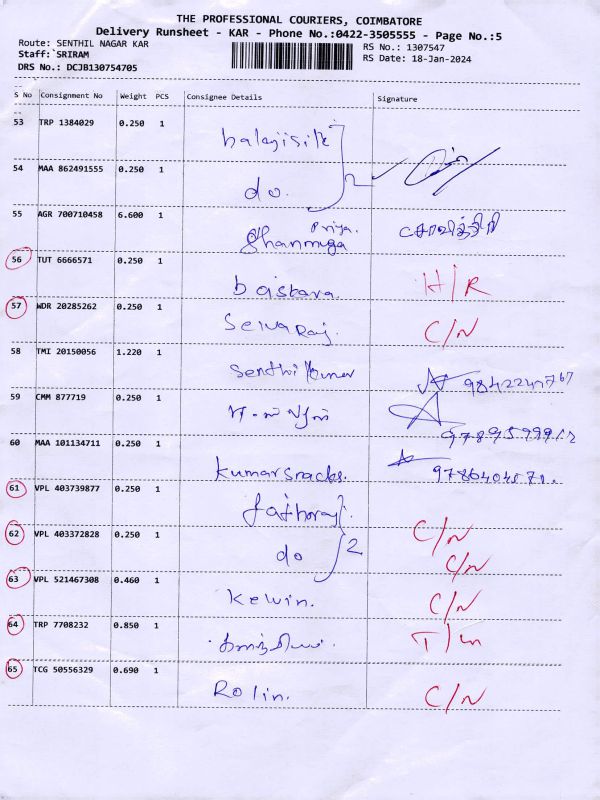 THE PROFESSIONAL COURIERS, COIMBATORE
Delivery Runsheet - KAR - Phone No.:0422-3505555 - Page No.:5
Route: SENTHIL NAGAR KAR
RS No.: 1307547
Staff:`SRIRAM
RS Date: 18-Jan-2024
DRS No.: DCJB130754705
S No Consignment No Weight PCS Consignee Details Signature
53 TRP 1384029 0.250 1
balajisilk
54 MAA 862491555 0.250 1 2
do.
55 AGR 700710458 6.600 1 Priya.
Shanmuga
56 TUT 6666571 0.250 1
baskara. H/R
57 WDR 20285262 0.250 1
Selva Raj. C/N
58 TMI 20150056 1.220 1
Senthil kumar
59 CMM 877719 0.250 1
60 MAA 101134711 0.250 1
kumarsnacks.
61 VPL 403739877 0.250 1
C/N
62 VPL 403372828 0.250 1 2
do C/N
63 VPL 521467308 0.460 1
Kelwin. C/N
64 TRP 7708232 0.850 1
65 TCG 50556329 0.690 1
Rolin. C/N